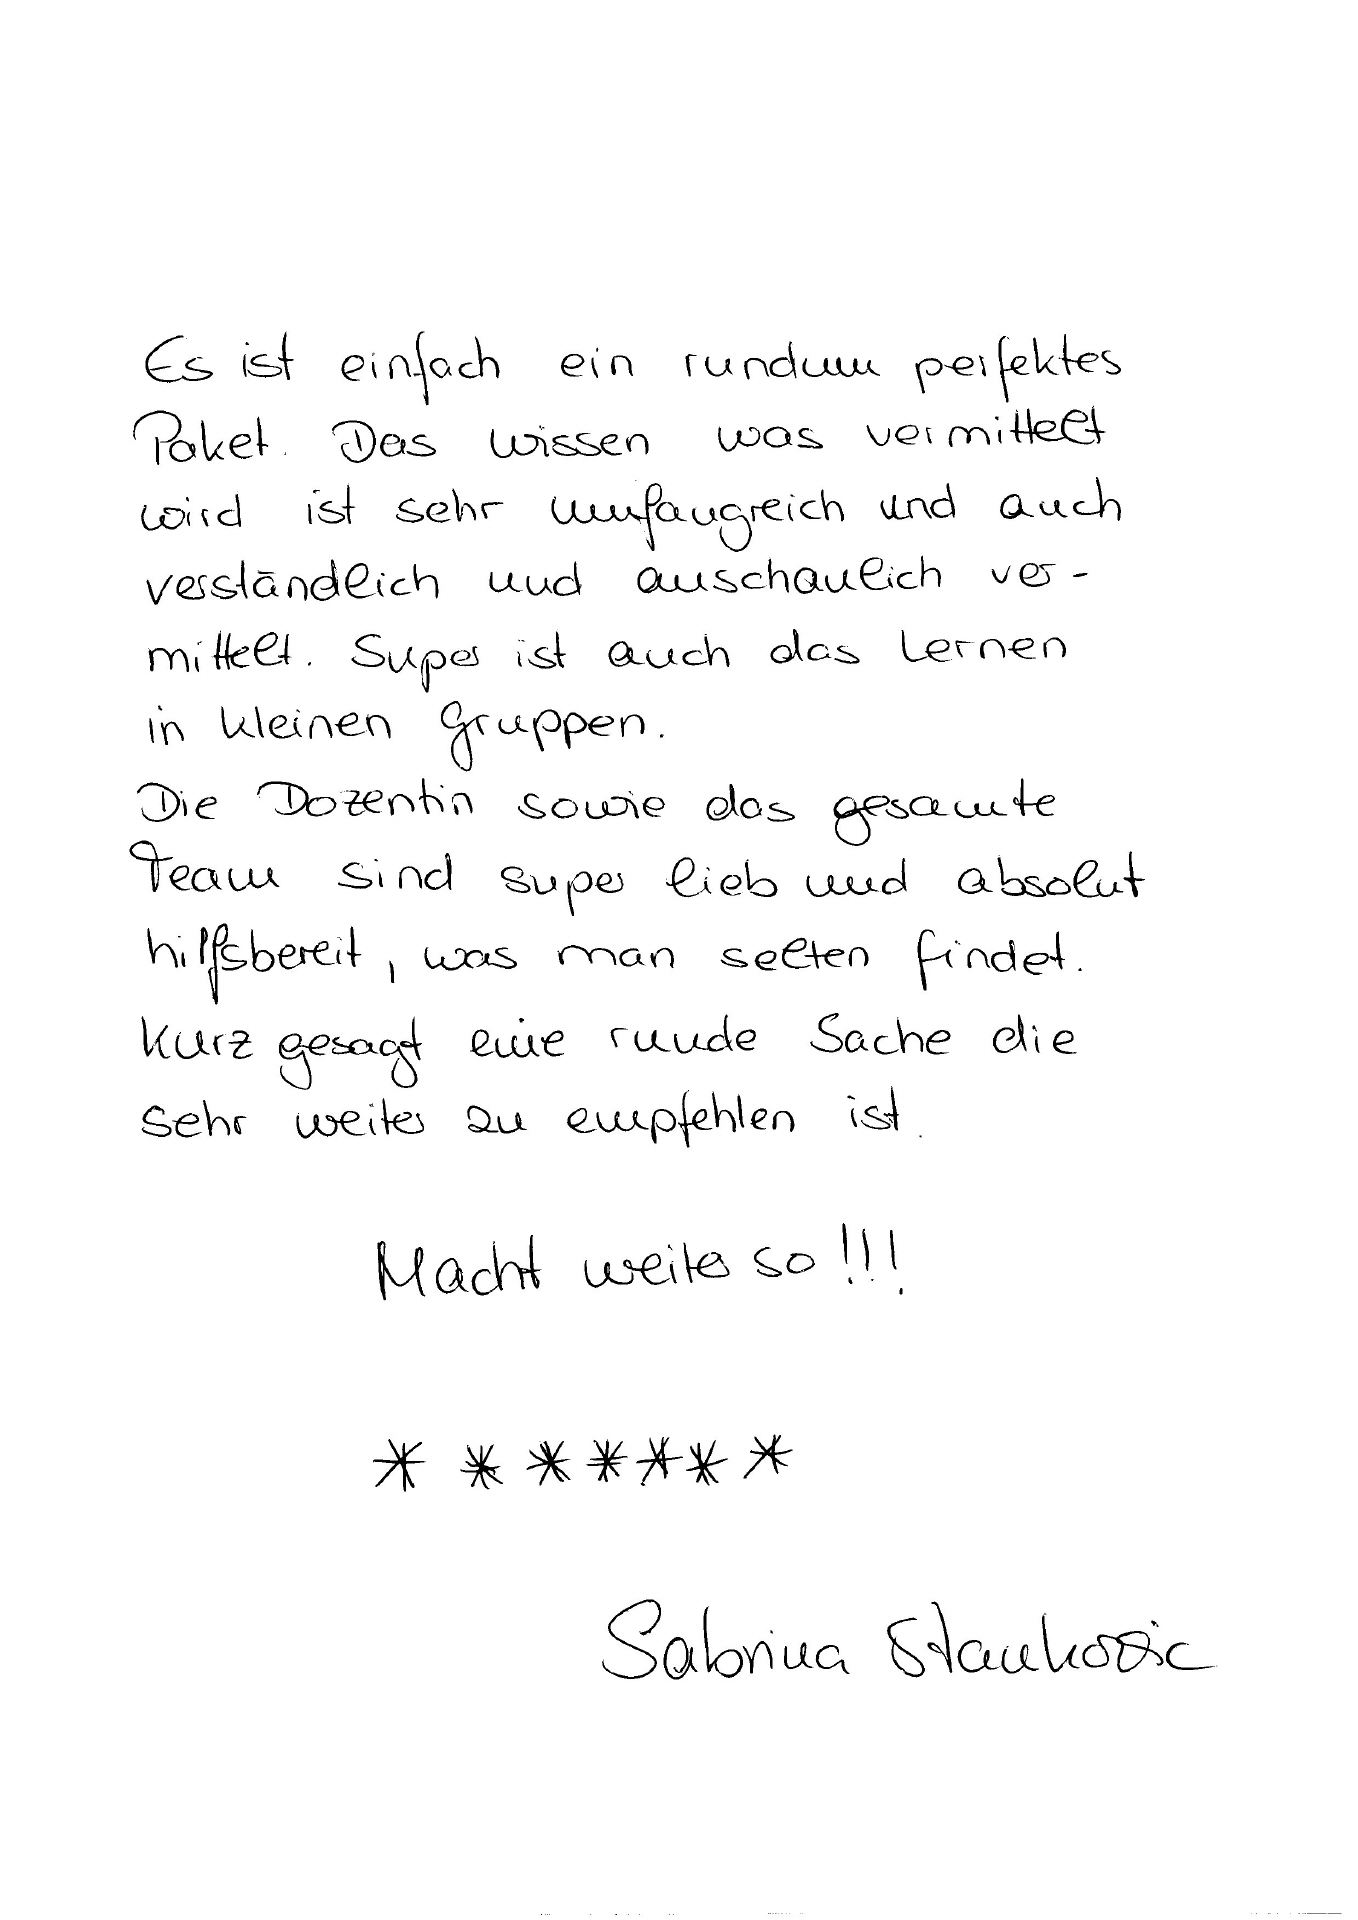 Es ist einfach ein rundum perfektes
Paket. Das wissen was vermittelt
wird ist sehr umfangreich und auch
verständlich und anschaulich ver-
mittelt. Super ist auch das Lernen
in kleinen Gruppen.
Die Dozentin sowie das gesamte
Team sind super lieb und absolut
hilfsbereit, was man selten findet.
Kurz gesagt eine runde Sache die
sehr weiter zu empfehlen ist.
Macht weiter so!!!
* * * * * * *
Sabrina Stankovic